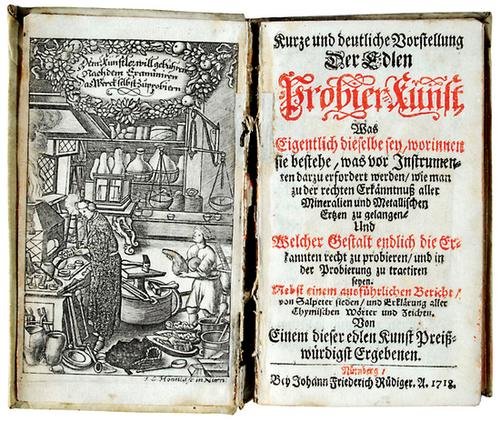 Dem Künstler will gebühren
Nach dem Examiniren
Das Werck selbst zu probiern
Kurze und deutliche Vorstellung
Der Edlen
Probier-Kunst,
Was
Eigentlich dieselbe sey, worinnen
sie bestehe, was vor Instrumen-
ten darzu erfordert werden/ wie man
zu der rechten Erkänntnuß aller
Mineralien und Metallischen
Ertzen zu gelangen/
Und
Welcher Gestalt endlich die Er-
kannten recht zu probieren/ und in
der Probierung zu tractiren
seyen.
Nebst einem ausführlichen Bericht/
von Salpeter sieden/ und Erklärung aller
Chymischen Wörter und Zeichen.
Von
Einem dieser edlen Kunst Preiß-
würdigst Ergebenen.
Nürnberg/
Bey Johann Friederich Rüdiger. A. 1718.